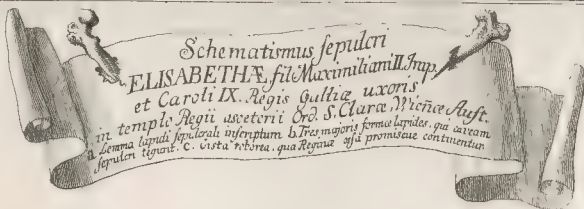 Schematismus sepulcri
ELISABETHÆ fil. Maximiliani II. Imp.
et Caroli IX. Regis Galliæ uxoris
in templo Regii asceterii Ord. S. Claræ Viennæ Aust.
a Lemma lapidi sepulcrali inscriptum b. Tres majoris formæ lapides, qui caveam
sepulcri tegunt. c. Cista roborea, qua Reginæ ossa promiscue continentur